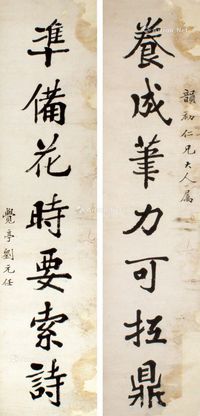 韻初仁兄大人屬
養成筆力可扛鼎
準備花時要索詩
覺亭劉元任